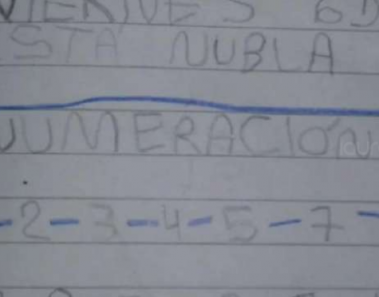 VIERNES 6D
STA NUBLA
NUMERACIÓN
-2-3-4-5-7-